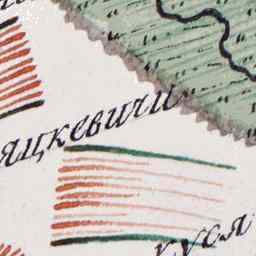 яцкевичи
куся